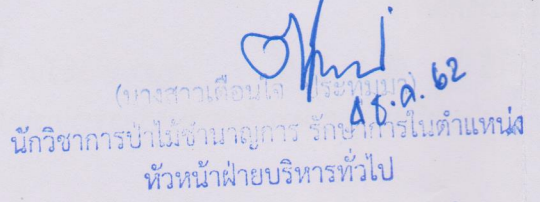 (นางสาวเตือนใจ ประทุมมา)
4 ธ.ค. 62
นักวิชาการป่าไม้ชำนาญการ รักษาการในตำแหน่ง
หัวหน้าฝ่ายบริหารทั่วไป